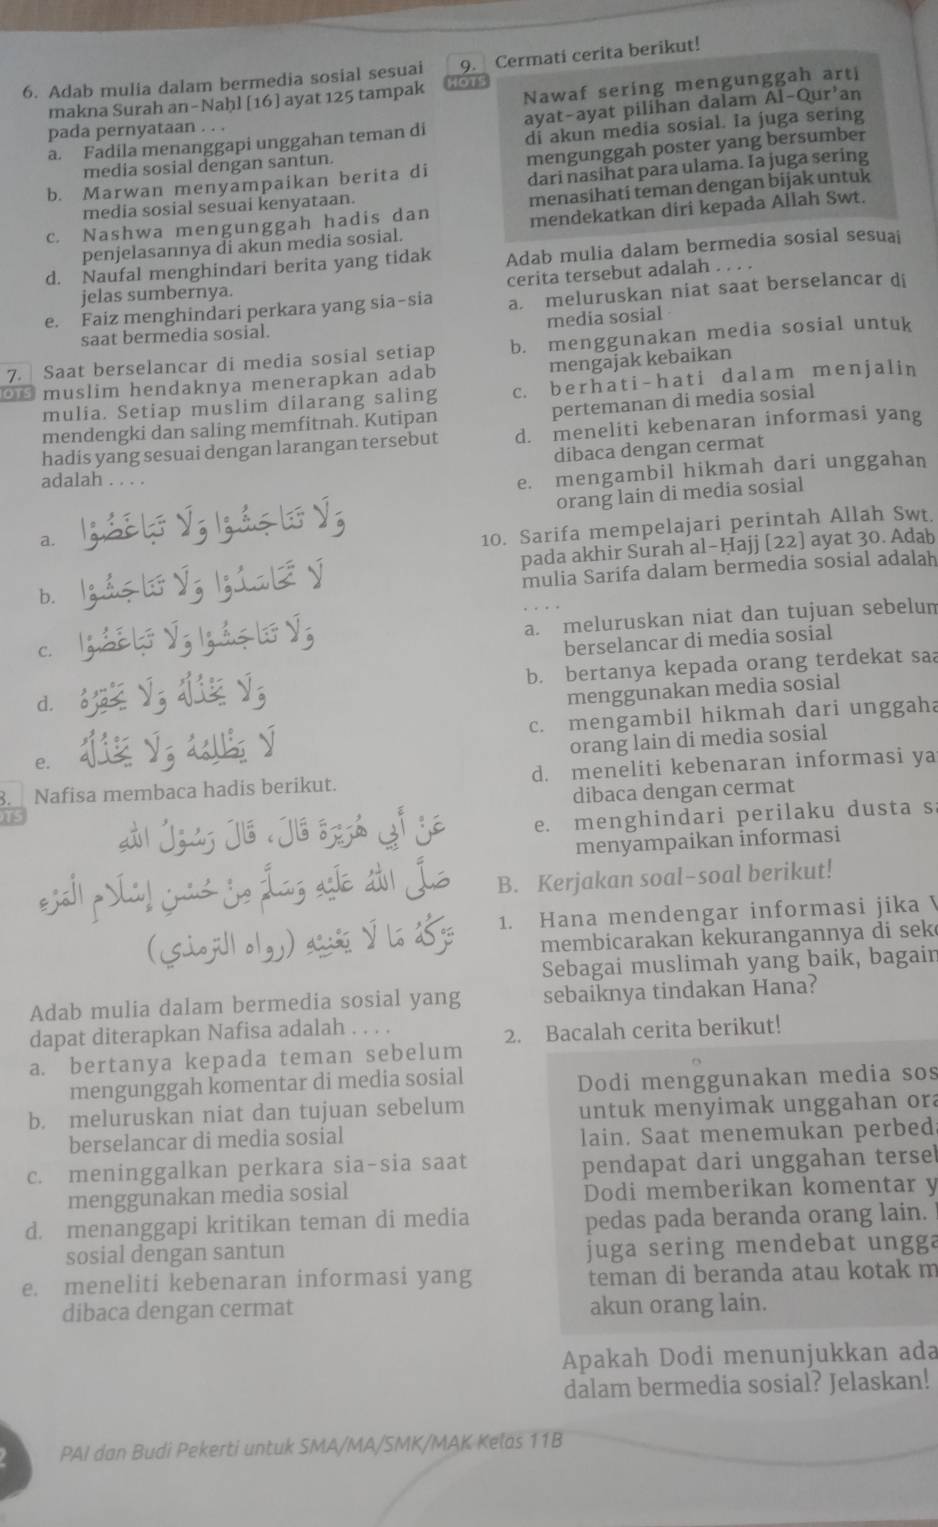 6. Adab mulia dalam bermedia sosial sesuai
makna Surah an-Naḥl [16] ayat 125 tampak
pada pernyataan . . .
a. Fadila menanggapi unggahan teman di
media sosial dengan santun.
b. Marwan menyampaikan berita di
media sosial sesuai kenyataan.
c. Nashwa mengunggah hadis dan
penjelasannya di akun media sosial.
d. Naufal menghindari berita yang tidak
jelas sumbernya.
e. Faiz menghindari perkara yang sia-sia
saat bermedia sosial.
7. Saat berselancar di media sosial setiap
muslim hendaknya menerapkan adab
mulia. Setiap muslim dilarang saling
mendengki dan saling memfitnah. Kutipan
hadis yang sesuai dengan larangan tersebut
adalah . . . .
a. وَلَا تَنَاجَشُوْا وَلَا تَبَاغَضُوْا
b. لَا تَحَاسَدُوْا وَلَا تَنَاجَشُوْا
c. وَلَا تَنَاجَشُوْا وَلَا تَبَاغَضُوْا
d. وَلَا يَخْذُلُهُ وَلَا يَحْقِرُهُ
e. لَا يَظْلِمُهُ وَلَا يَخْذُلُهُ
8. Nafisa membaca hadis berikut.
عَنْ أَبِي هُرَيْرَةَ قَالَ، قَالَ رَسُوْلُ اللهِ
صَلَّى اللهُ عَلَيْهِ وَسَلَّمَ مِنْ حُسْنِ إِسْلَامِ الْمَرْءِ
تَرْكُهُ مَا لَا يَعْنِيْهِ (رواه الترمذي)
Adab mulia dalam bermedia sosial yang
dapat diterapkan Nafisa adalah . . . .
a. bertanya kepada teman sebelum
mengunggah komentar di media sosial
b. meluruskan niat dan tujuan sebelum
berselancar di media sosial
c. meninggalkan perkara sia-sia saat
menggunakan media sosial
d. menanggapi kritikan teman di media
sosial dengan santun
e. meneliti kebenaran informasi yang
dibaca dengan cermat
9. Cermati cerita berikut!
HOTS
Nawaf sering mengunggah arti
ayat-ayat pilihan dalam Al-Qur'an
di akun media sosial. Ia juga sering
mengunggah poster yang bersumber
dari nasihat para ulama. Ia juga sering
menasihati teman dengan bijak untuk
mendekatkan diri kepada Allah Swt.
Adab mulia dalam bermedia sosial sesuai
cerita tersebut adalah . . . .
a. meluruskan niat saat berselancar di
media sosial
b. menggunakan media sosial untuk
mengajak kebaikan
c. berhati-hati dalam menjalin
pertemanan di media sosial
d. meneliti kebenaran informasi yang
dibaca dengan cermat
e. mengambil hikmah dari unggahan
orang lain di media sosial
10. Sarifa mempelajari perintah Allah Swt.
pada akhir Surah al-Ḥajj [22] ayat 30. Adab
mulia Sarifa dalam bermedia sosial adalah
. . . .
a. meluruskan niat dan tujuan sebelum
berselancar di media sosial
b. bertanya kepada orang terdekat saa
menggunakan media sosial
c. mengambil hikmah dari unggaha
orang lain di media sosial
d. meneliti kebenaran informasi ya
dibaca dengan cermat
e. menghindari perilaku dusta sa
menyampaikan informasi
B. Kerjakan soal-soal berikut!
1. Hana mendengar informasi jika
membicarakan kekurangannya di seko
Sebagai muslimah yang baik, bagaim
sebaiknya tindakan Hana?
2. Bacalah cerita berikut!
Dodi menggunakan media sos
untuk menyimak unggahan ora
lain. Saat menemukan perbeda
pendapat dari unggahan terseb
Dodi memberikan komentar y
pedas pada beranda orang lain.
juga sering mendebat ungga
teman di beranda atau kotak m
akun orang lain.
Apakah Dodi menunjukkan ada
dalam bermedia sosial? Jelaskan!
PAI dan Budi Pekerti untuk SMA/MA/SMK/MAK Kelas 11B